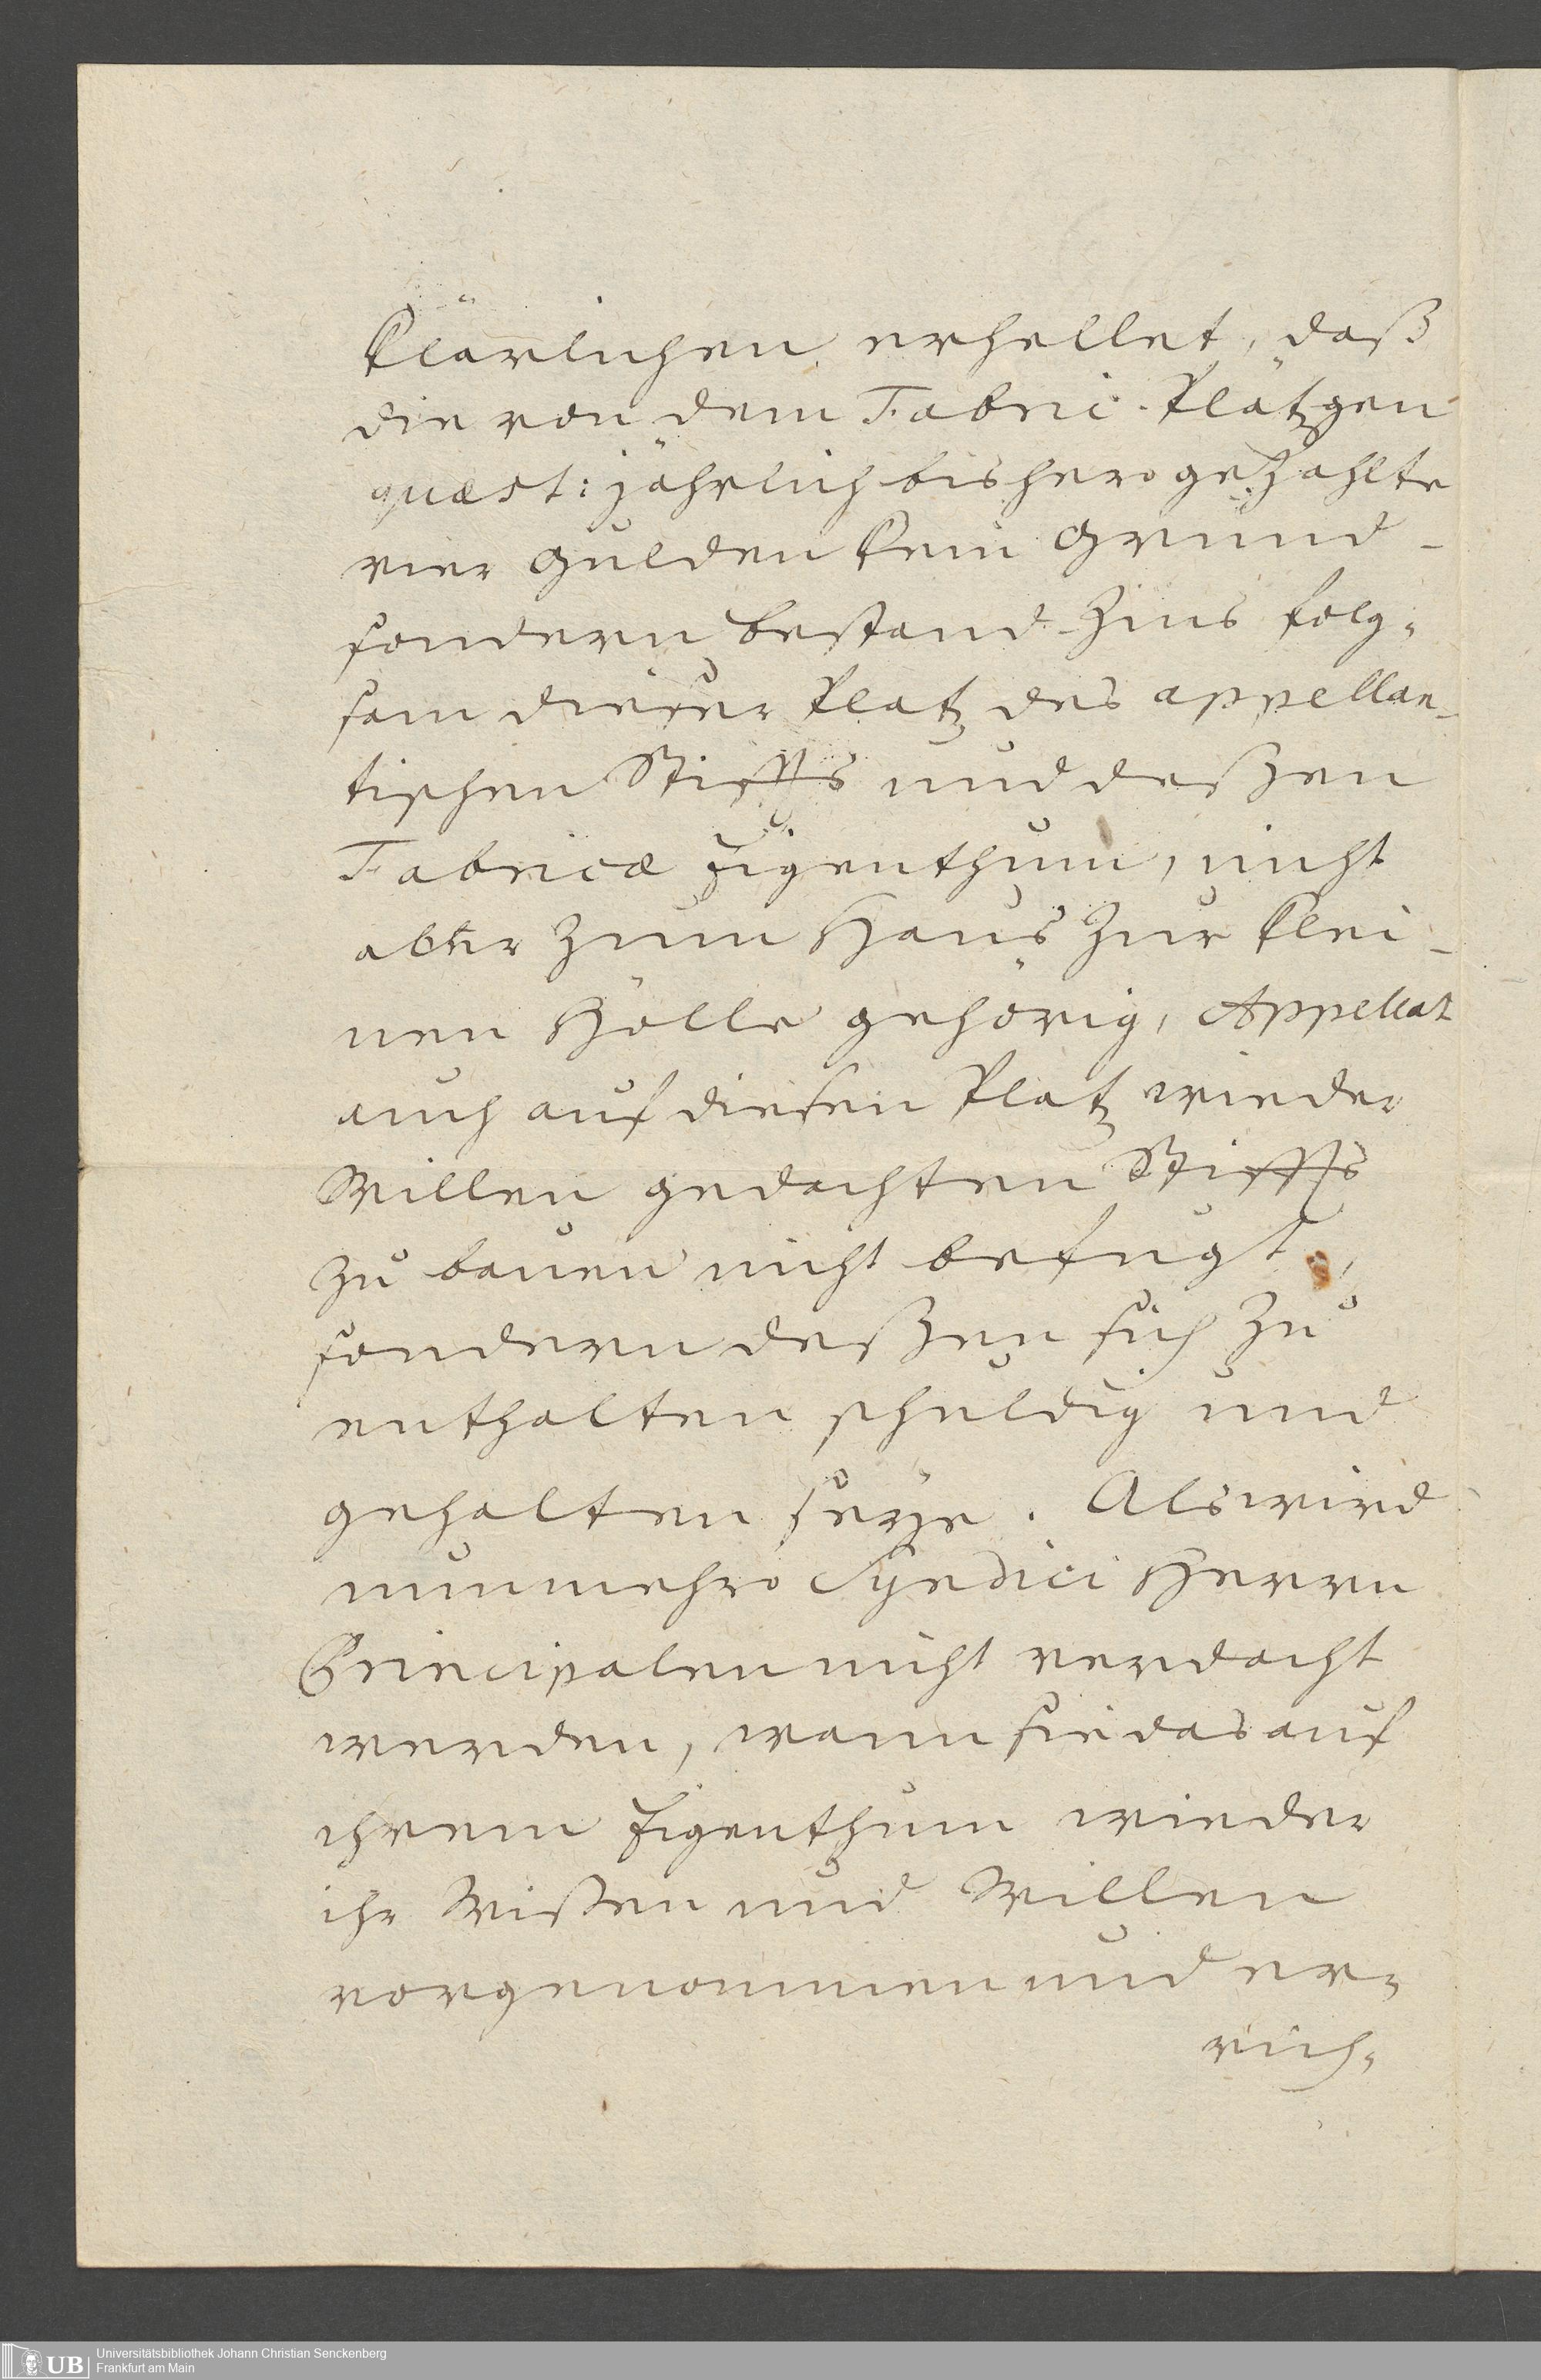 klärlichen erhellet, daß
die von dem Fabric-Plätzgen
quæst: jährlich bishero gezahlte
vier Gulden kein Grund-
sondern Bestand-Zins folg-
sam dieser Platz des appellan-
tischen Stiffts und deßen
Fabricæ Eigenthum, nicht
aber zum Hauß zur klei-
nen Hölle gehörig, Appellat
auch auf diesen Platz wieder
Willen gedachten Stiffts
zu bauen nicht befugt,
sondern deßen sich zu
enthalten schuldig und
gehalten seye. Als wird
nunmehro Syndici Herren
Principalen nicht verdacht
werden, wann sie das auf
ihrem Eigenthum wieder
ihr Wißen und Willen
vorgenommen und er-
rich-
Universitätsbibliothek Johann Christian Senckenberg
Frankfurt am Main
UB